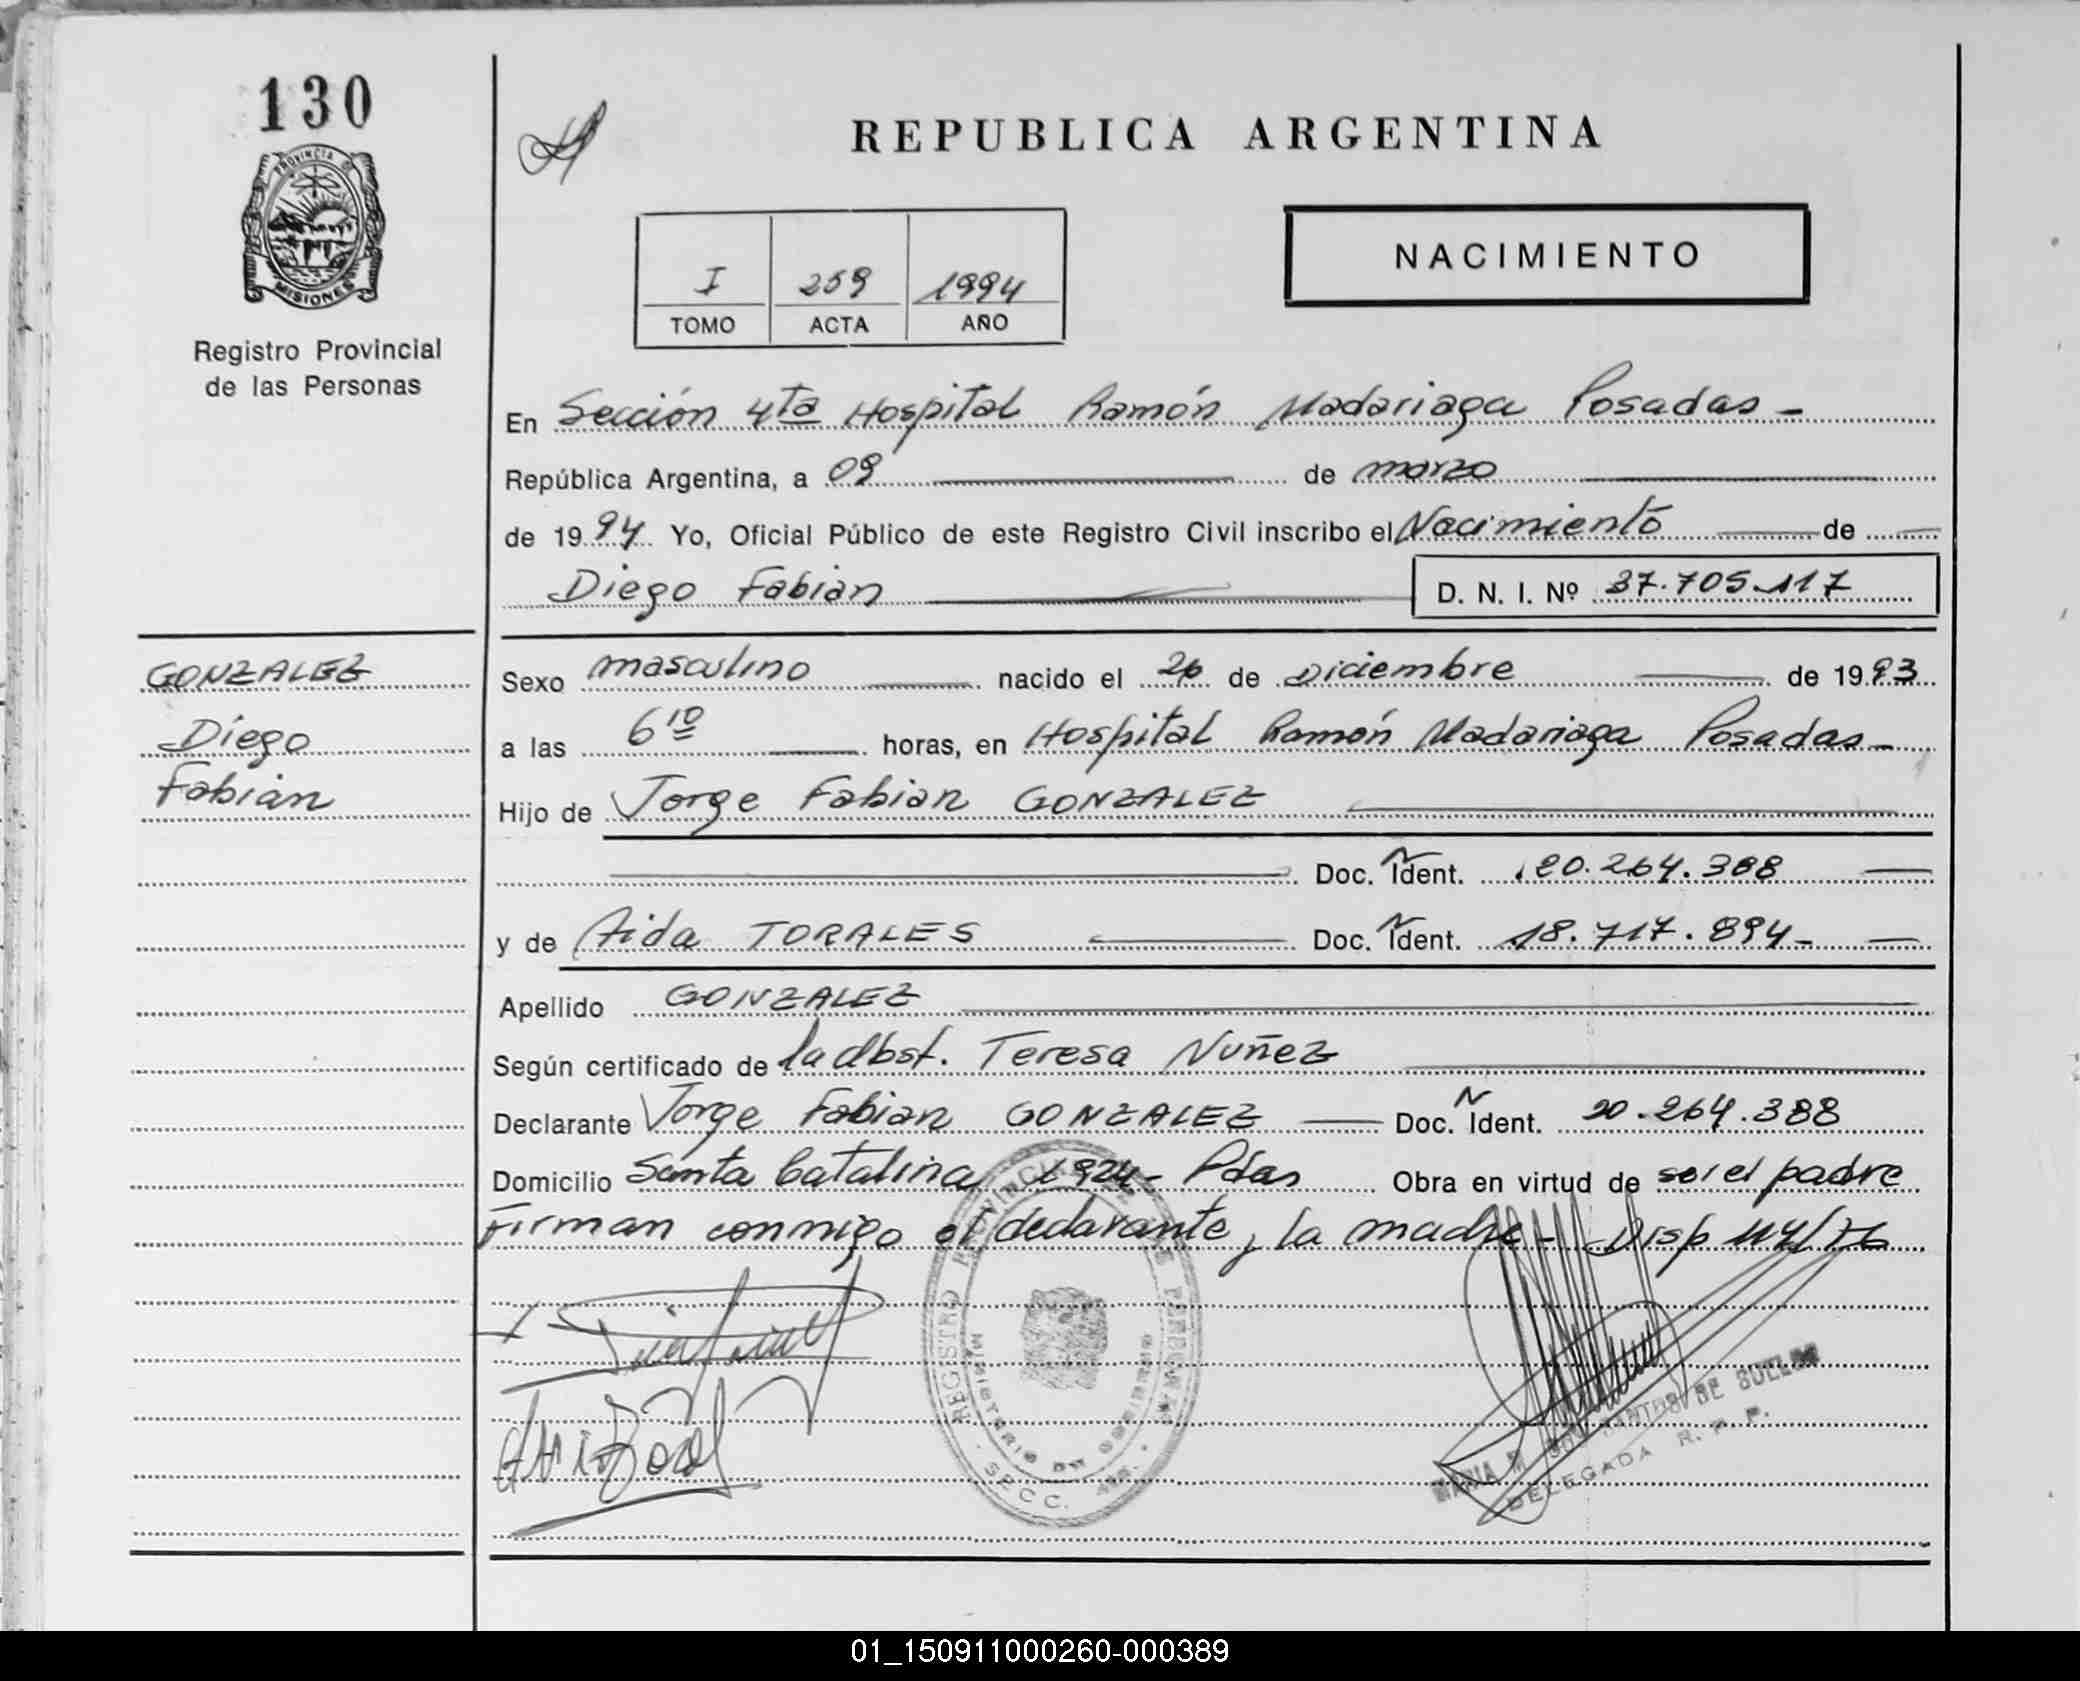 130
PROVINCIA D
MISIONES
Registro Provincial
de las Personas
REPUBLICA ARGENTINA
NACIMIENTO
I 259 1994
TOMO ACTA AÑO
En Sección 4ta Hospital Ramón Madariaga Posadas -
República Argentina, a 09 de marzo
de 1994 Yo, Oficial Público de este Registro Civil inscribo el Nacimiento de
Diego Fabian D. N. I. Nº 37.705.117
GONZALEZ
Diego
Fabian
Sexo masculino nacido el 26 de Diciembre de 1993
a las 6 10 horas, en Hospital Ramón Madariaga Posadas -
Hijo de Jorge Fabian GONZALEZ
Doc. Ident. 20.264.388
y de Aida TORALES Doc. Ident. 18.717.894-
Apellido GONZALEZ
Según certificado de la Obst. Teresa Nuñez
Declarante Jorge Fabian GONZALEZ Doc. Ident. 20.264.388
Domicilio Santa Catalina 1924- Pdas Obra en virtud de ser el padre
Firman conmigo el declarante y la madre - Disp 114/76
REGISTRO PROVINCIAL DE LAS PERSONAS
MINISTERIO DE GOBIERNO
S.P.C.C.
MARIA M DE
DELEGADA R. P. P.
01_150911000260-000389